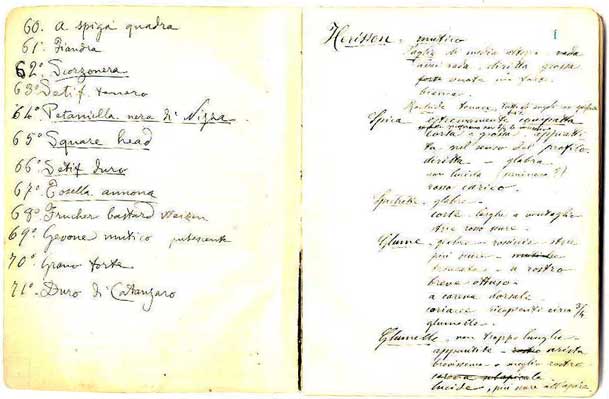 60. a spiga quadra
61° Fiandra
62° Scorzonera
63° Setif tenero
64° Petaniella nera di Nizza
65° Square head
66° Setif duro
67° Tosella annona
68° Frucher bastard Weizen
69° Gerone mutico pubescente
70° Grano forte
71° Duro di Catanzaro
1
Herisson mutico
Taglia di media altezza, rada
diritta grossa
bianca
Rachide tenace
Spica compatta
corta e grossa, appiatti
ta nel senso del profilo
diritta - glabra
non lucida
rosso carico.
Spichette glabre
corte larghe a ventaglio
Glume - glabre - rossiccie strie
più scure
troncate - a rostro
breve ottuso
a carena dorsale.
coriacee ricoprenti circa 3/4
glumette.
Glumelle non troppo lunghe
appuntite - arista
brevissima o meglio rostro
lucide, più scure all'apice.